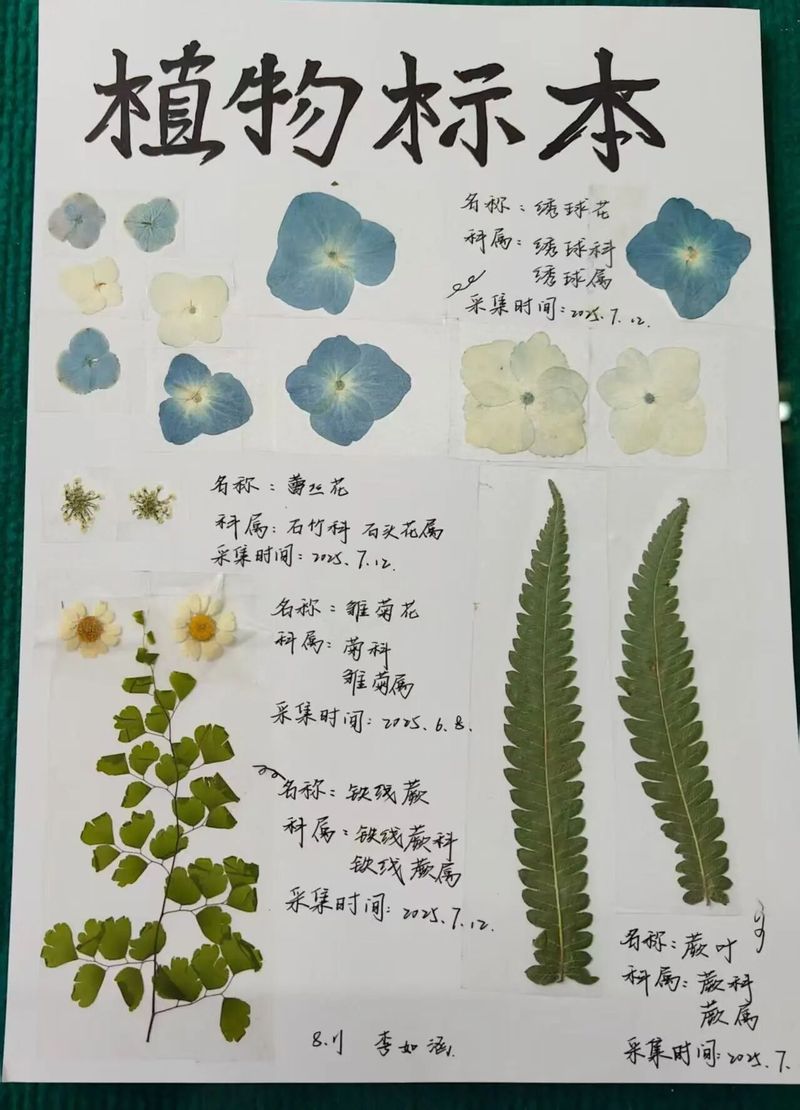 植物标本
名称：绣球花
科属：绣球科
绣球属
采集时间：2025.7.12.
名称：蕾丝花
科属：石竹科 石头花属
采集时间：2025.7.12.
名称：雏菊花
科属：菊科
雏菊属
采集时间：2025.6.8.
名称：铁线蕨
科属：铁线蕨科
铁线蕨属
采集时间：2025.7.12.
名称：蕨叶
科属：蕨科
蕨属
采集时间：2025.7.
李如涵